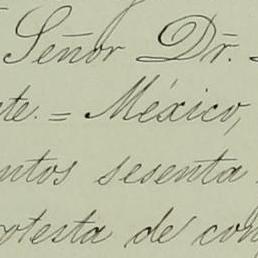 Señor Dr.
te. = México,
ntos sesenta
otesta de con